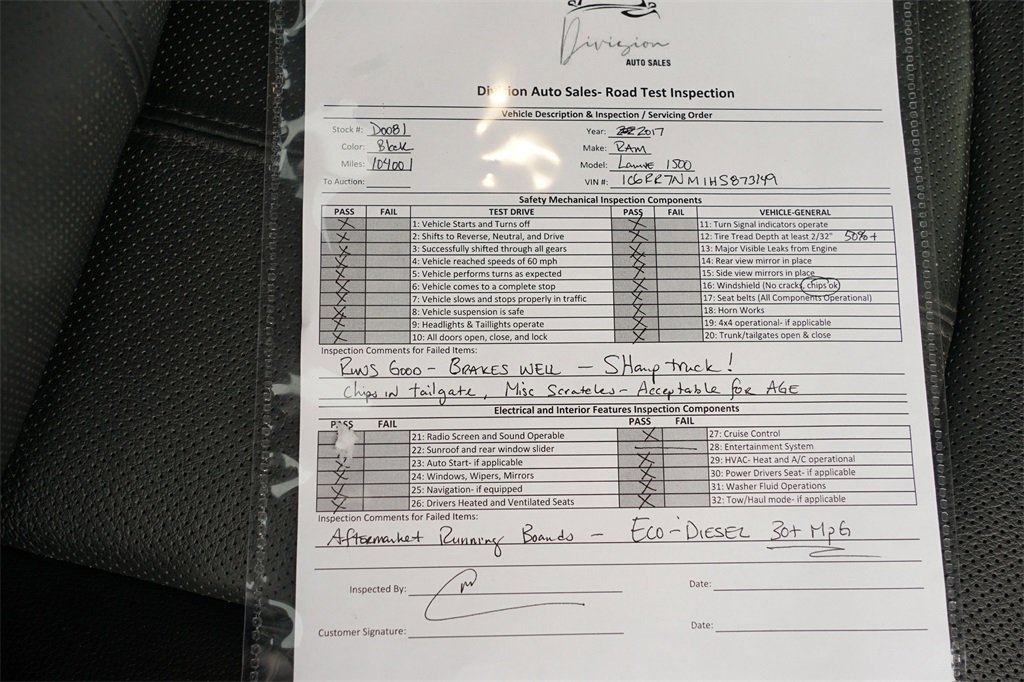 Division
AUTO SALES
Division Auto Sales- Road Test Inspection
Vehicle Description & Inspection / Servicing Order
Stock #: D0081 Year: 2017
Color: Black Make: RAM
Miles: 104001 Model: 1500
To Auction: VIN #: 1C6RR7NM1HS873149
Safety Mechanical Inspection Components
PASS FAIL TEST DRIVE PASS FAIL VEHICLE-GENERAL
X 1: Vehicle Starts and Turns off X 11: Turn Signal indicators operate
X 2: Shifts to Reverse, Neutral, and Drive X 12: Tire Tread Depth at least 2/32" 50%+
X 3: Successfully shifted through all gears X 13: Major Visible Leaks from Engine
X 4: Vehicle reached speeds of 60 mph X 14: Rear view mirror in place
X 5: Vehicle performs turns as expected X 15: Side view mirrors in place
X 6: Vehicle comes to a complete stop X 16: Windshield (No cracks, chips ok)
X 7: Vehicle slows and stops properly in traffic X 17: Seat belts (All Components Operational)
X 8: Vehicle suspension is safe X 18: Horn Works
X 9: Headlights & Taillights operate X 19: 4x4 operational- if applicable
X 10: All doors open, close, and lock X 20: Trunk/tailgates open & close
Inspection Comments for Failed Items:
RUNS GOOD - BRAKES WELL - SHarp truck!
Chips in tailgate, Misc Scratches - Acceptable for AGE
Electrical and Interior Features Inspection Components
PASS FAIL PASS FAIL
21: Radio Screen and Sound Operable X 27: Cruise Control
22: Sunroof and rear window slider 28: Entertainment System
X 23: Auto Start- if applicable X 29: HVAC- Heat and A/C operational
X 24: Windows, Wipers, Mirrors X 30: Power Drivers Seat- if applicable
X 25: Navigation- if equipped X 31: Washer Fluid Operations
X 26: Drivers Heated and Ventilated Seats X 32: Tow/Haul mode- if applicable
Inspection Comments for Failed Items:
Aftermarket Running Boards - ECO-DIESEL 30+ MPG
Inspected By: Date:
Customer Signature: Date: